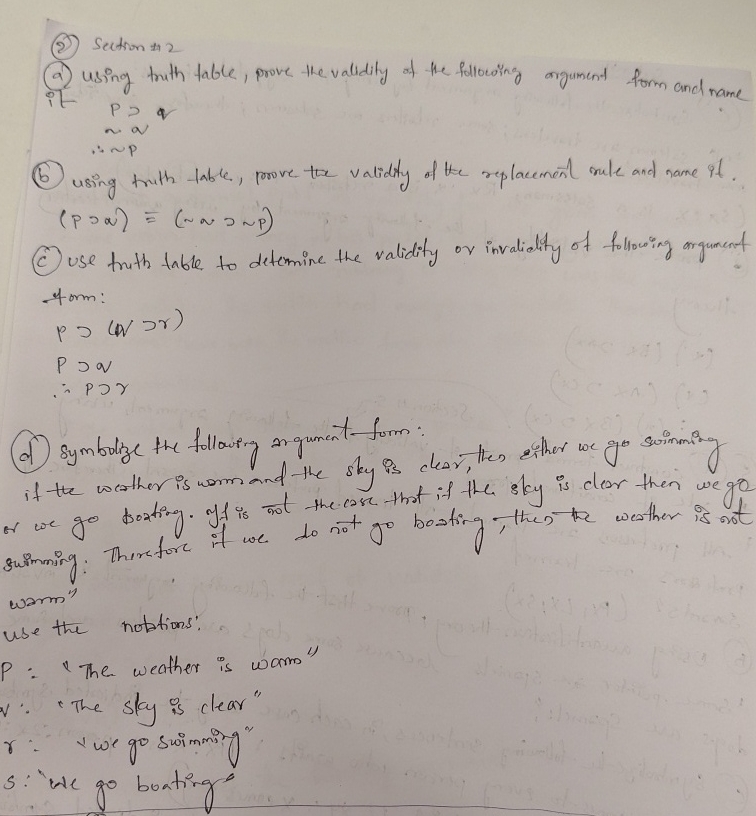 ② Section # 2
ⓐ using truth table, prove the validity of the following argument form and name
it
P ⊃ q
~ q
∴ ~P
ⓑ using truth table, prove the validity of the replacement rule and name it.
(P ⊃ q) ≡ (~q ⊃ ~p)
ⓒ use truth table to determine the validity or invalidity of following argument
form:
P ⊃ (q ⊃ r)
P ⊃ q
∴ P ⊃ r
ⓓ symbolize the following argument form:
if the weather is warm and the sky is clear, then either we go swimming
or we go boating. It is not the case that if the sky is clear then we go
swimming. Therefore if we do not go boating, then the weather is not
warm"
use the notations:
P : "The weather is warm"
q : "The sky is clear"
r : "we go swimming"
s : "we go boating"